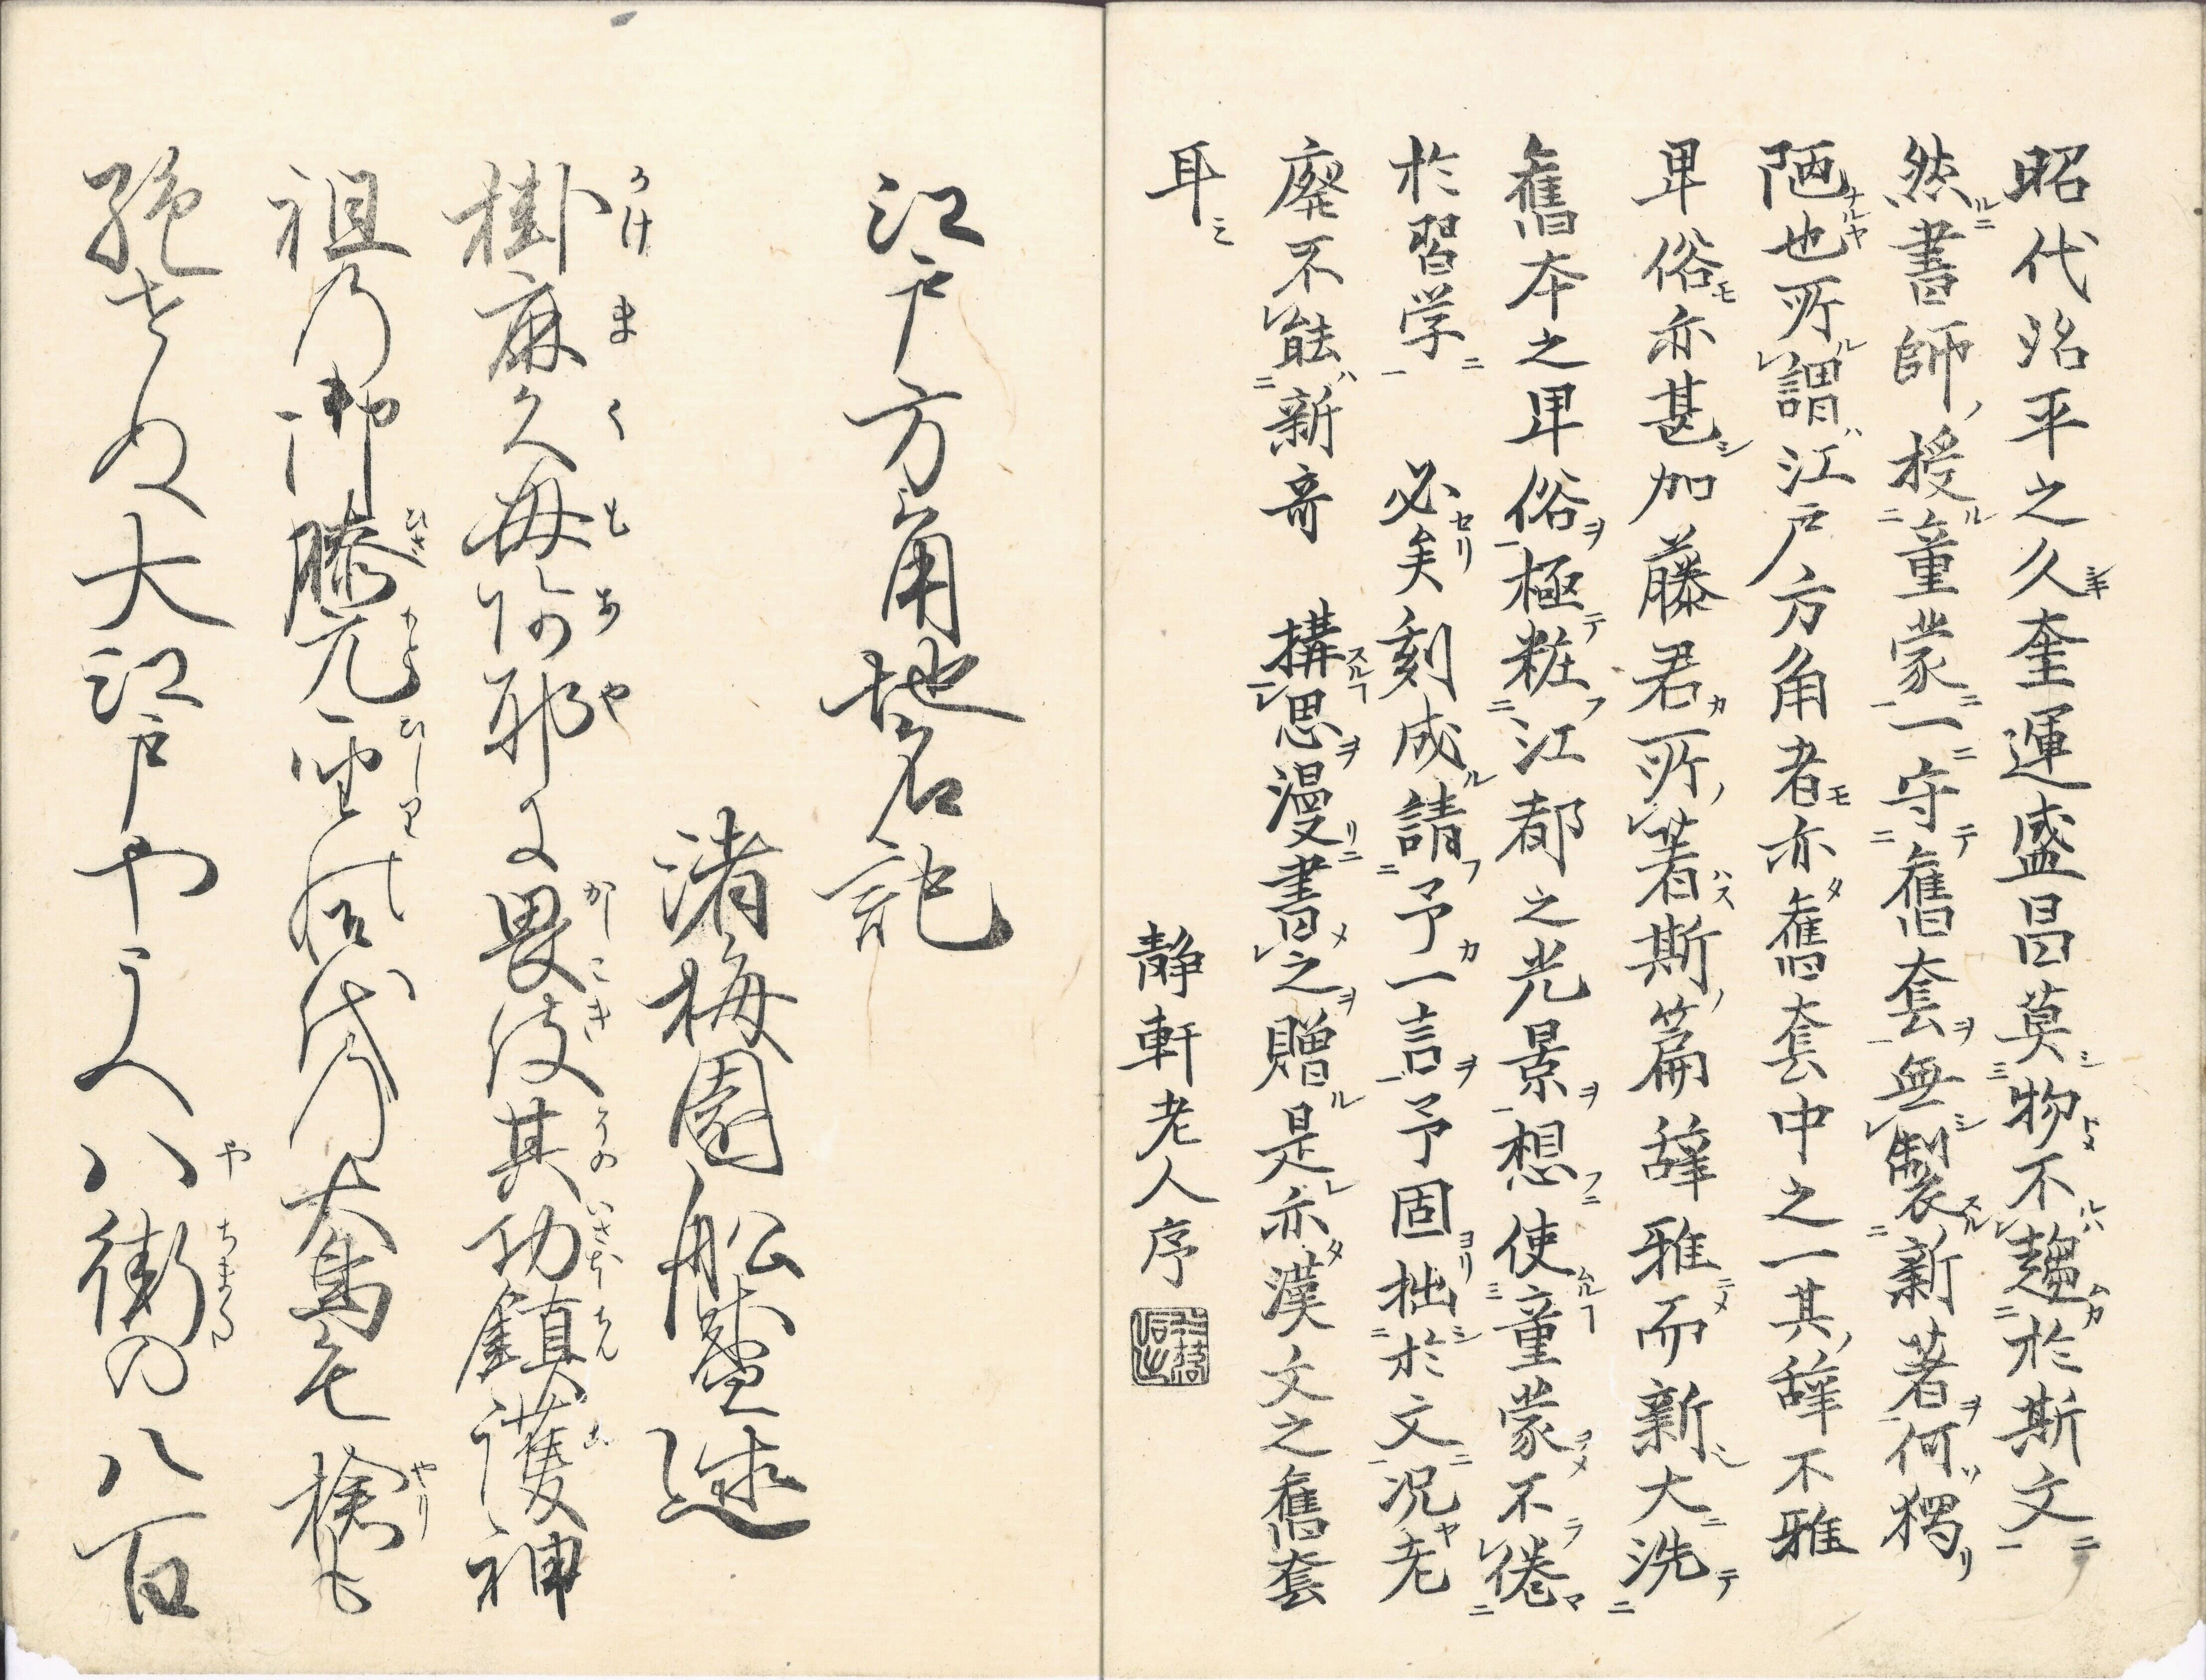 昭代治平之久奎運盛昌莫物不趨於斯文
然書師授童蒙一守舊套無製新著何獨
陋也所謂江戸方角者亦舊套中之一其辞不雅
卑俗亦甚加藤君所著斯篇辞雅而新大洗
舊本之卑俗極粧江都之光景想使童蒙不倦
於習学 必矣刻成請予一言予固拙於文况老
廃不能新奇 構思漫書之贈是亦漢文之舊套
耳
静軒老人序
江戸方角地名記
渚梅園松盛述
掛麻久毎阿耶に畏伎其功鎮護神
祖乃御膝元聖の御代乃大鳥毛槍も
絶せぬ大江戸や八街の八百